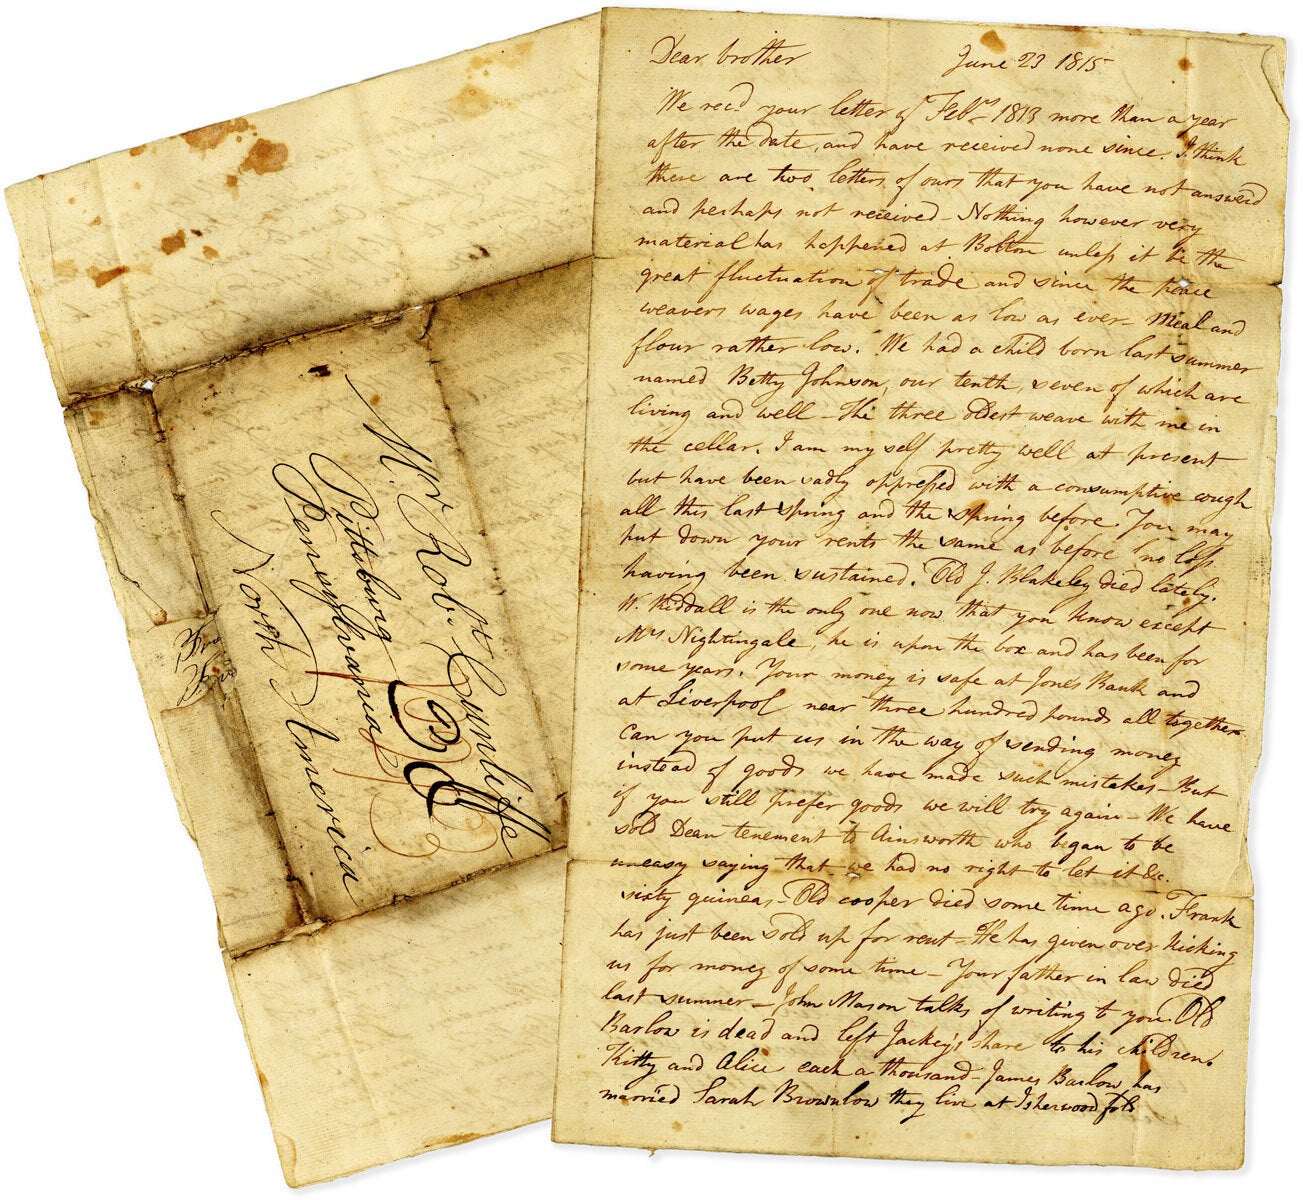 Dear brother June 23 1815
We recd your letter of Feby 1813 more than a year
after the date, and have received none since. I think
there are two letters of ours that you have not answerd
and perhaps not received – Nothing however very
material has happened at Bolton unless it be the
great fluctuation of trade and since the peace
weavers wages have been as low as ever – Meal and
flour rather low. We had a child born last summer
named Betty Johnson, our tenth, seven of which are
living and well – The three oldest weave with me in
the cellar. I am my self pretty well at present
but have been sadly oppressed with a consumptive cough
all this last spring and the spring before. You may
put down your rents the same as before no loss
having been sustained. Old J. Blakeley died lately.
W. Kiddall is the only one now that you know except
Mrs Nightingale, he is upon the box and has been for
some years. Your money is safe at Jones Bank and
at Liverpool near three hundred pounds all together.
Can you put us in the way of sending money
instead of goods we have made such mistakes – But
if you still prefer goods we will try again – We have
sold Dean tenement to Ainsworth who began to be
uneasy saying that we had no right to let it &c.
sixty guineas – Old cooper died some time ago. Frank
has just been sold up for rent – He has given over kicking
us for money of some time – Your father in law died
last summer – John Mason talks of writing to you Old
Barlow is dead and left Jackey's share to his children.
Kitty and Alice each a thousand – James Barlow has
married Sarah Brownlow they live at Isherwood fold
Mr Robt Cunliffe
Pittsburg
Pennsylvania
North America